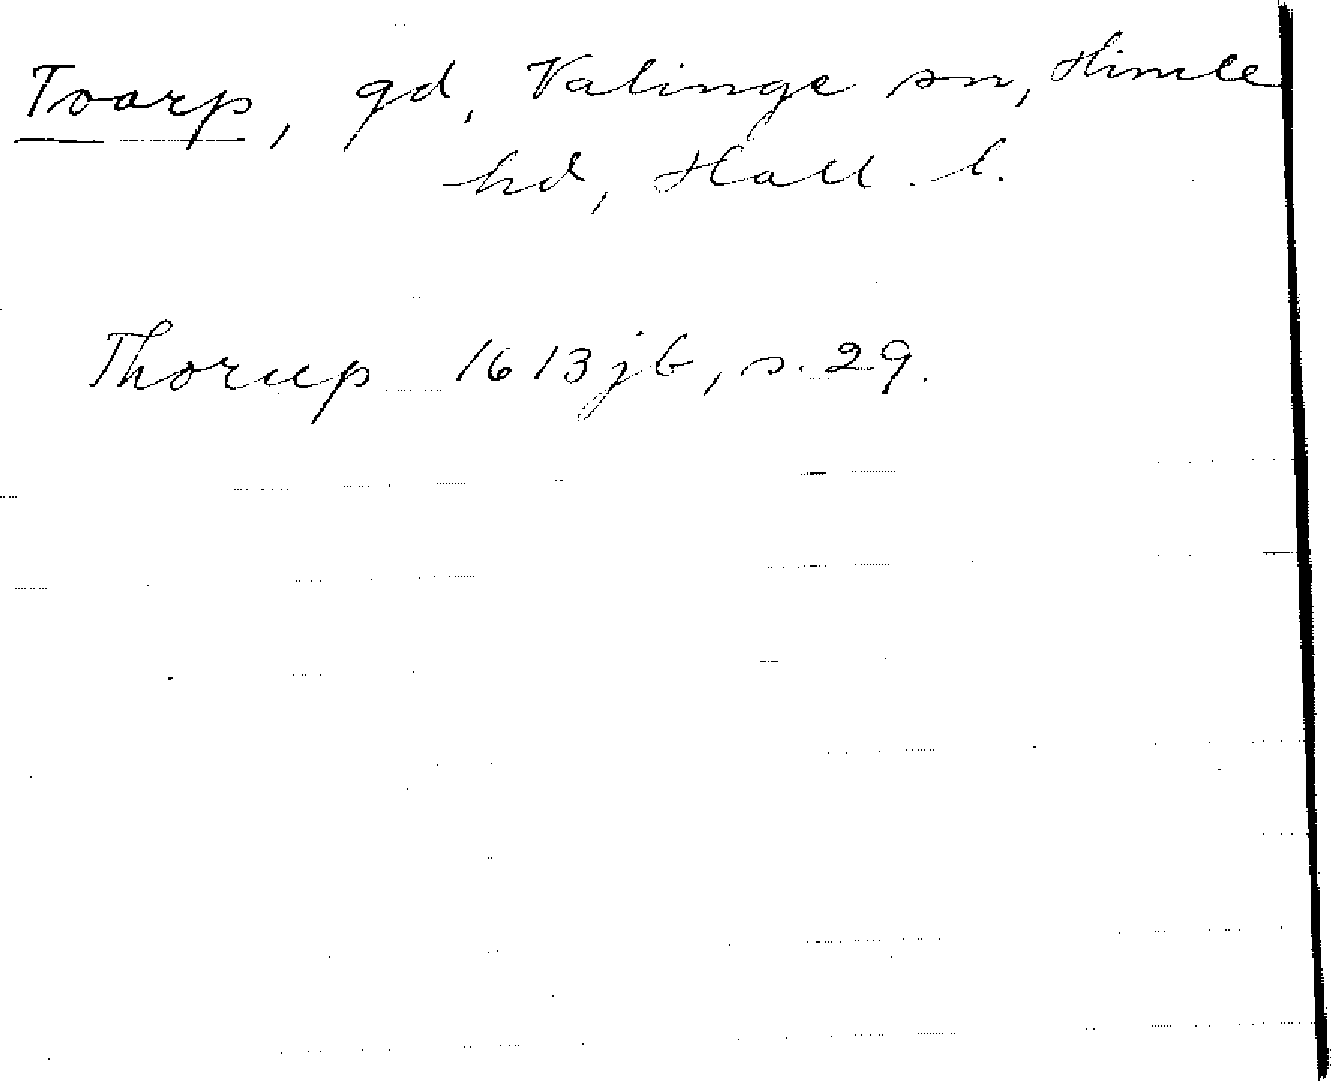 Toarp, gd, Valinge sn, Himle
hd, Hall. l.
Thorup 1613 jb, s. 29.